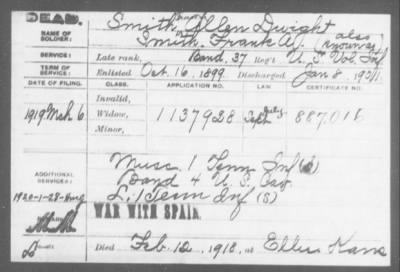 DEAD.
NAME OF SOLDIER: Smith, Allen Dwight
Smith, Frank A. also known as
SERVICE: Late rank, Band, 37 Reg't U. S. Vol. Inf.
TERM OF SERVICE: Enlisted Oct. 16, 1899 Discharged Jan 8 1901
DATE OF FILING. CLASS. APPLICATION NO. LAW. CERTIFICATE NO.
Invalid,
1919 Mch 6 Widow, 1137928 887018
Minor,
ADDITIONAL SERVICES: Musc. 1 Tenn Inf (S)
Band 4 U. S. Cav
1920-1-28- L. 1 Tenn Inf (S)
WAR WITH SPAIN.
Died Feb. 12, 1918, at Ellis Kans